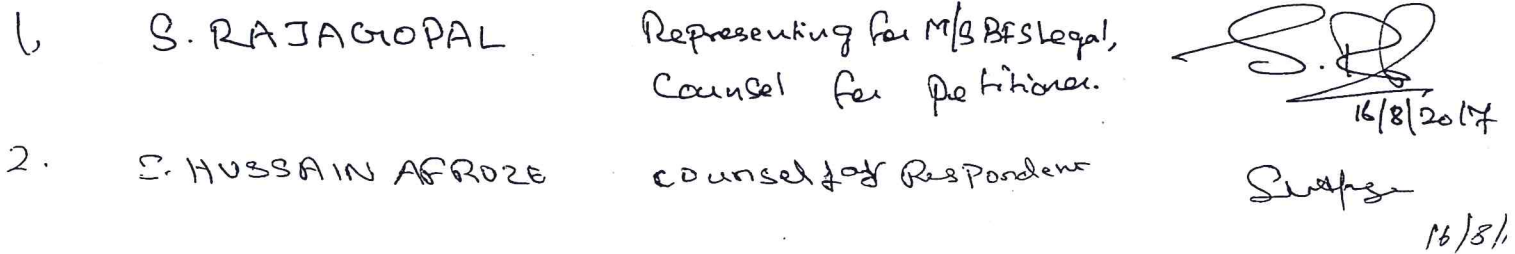 1, S. RAJAGOPAL Representing for M/S BFS Legal,
Counsel for Petitioner.
S.R
16/8/2017
2. S. HUSSAIN AFROZE counsel for Respondent
16/8/